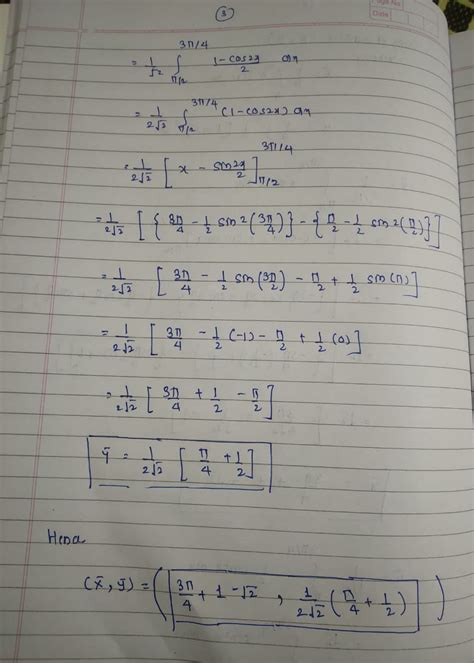 ③
Page No
Date
= 1/√2 ∫_{π/2}^{3π/4} (1-cos2x)/2 dx
= 1/(2√2) ∫_{π/2}^{3π/4} (1-cos2x) dx
= 1/(2√2) [x - sin2x/2]_{π/2}^{3π/4}
= 1/(2√2) [{3π/4 - 1/2 sin2(3π/4)} - {π/2 - 1/2 sin2(π/2)}]
= 1/(2√2) [3π/4 - 1/2 sin(3π/2) - π/2 + 1/2 sin(π)]
= 1/(2√2) [3π/4 - 1/2 (-1) - π/2 + 1/2 (0)]
= 1/(2√2) [3π/4 + 1/2 - π/2]
ȳ = 1/(2√2) [π/4 + 1/2]
(x̄, ȳ) = (3π/4 + 1 - √2 , 1/(2√2) (π/4 + 1/2))